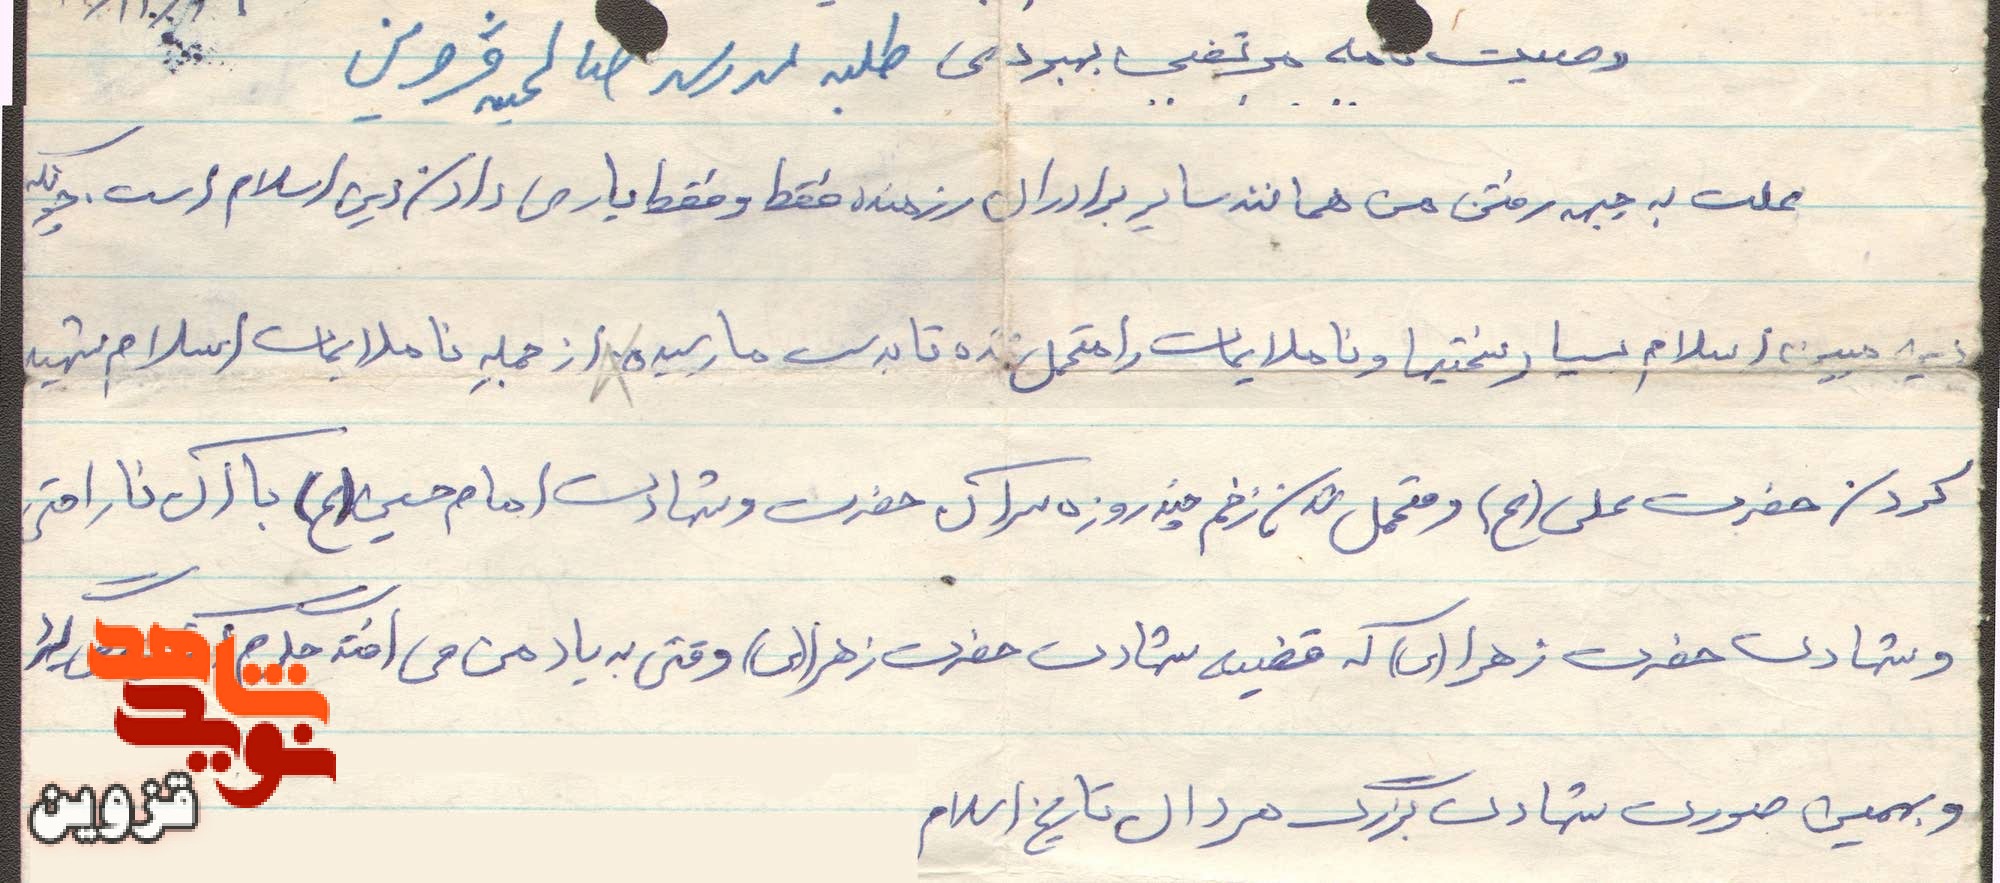 وصیت نامه مرتضی بهبودی طلبه مدرسه صالحیه قزوین
علت به جبهه رفتن من همانند سایر برادران رزمنده فقط و فقط یاری دادن دین اسلام است. چونکه
دین مبین اسلام بسیار سختیها و ناملایمات را متحمل شده تا بدست ما رسیده از جمله ناملایمات اسلام شهید
کردن حضرت علی (ع) و متحمل شدن زخم چند روزه سر آن حضرت و شهادت امام حسین (ع) با آن ناراحتی
و شهادت حضرت زهرا (س) که قضیه شهادت حضرت زهرا (س) وقتی به یاد من می افتد جگرم
و بهمین صورت شهادت بزرگ مردان تاریخ اسلام
شاهد
نوید
قزوین